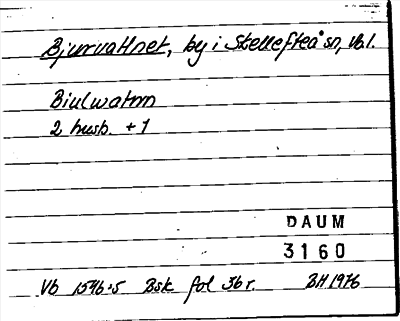 Bjurvattnet, by i Skellefteå sn, Vb.l.
Biulwatnn
2 husb. + 1
DAUM
3160
Vb 1546:5 Bsk fol 36 r. BH 1976